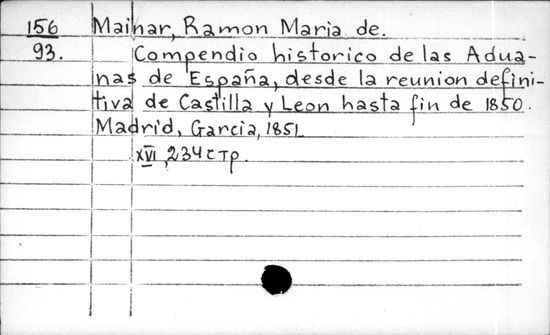 156 Mainar, Ramon Maria de.
93. Compendio historico de las Adua-
nas de España, desde la reunion defini-
tiva de Castilla y Leon hasta fin de 1850.
Madrid, Garcia, 1851
XVI, 234 стр.